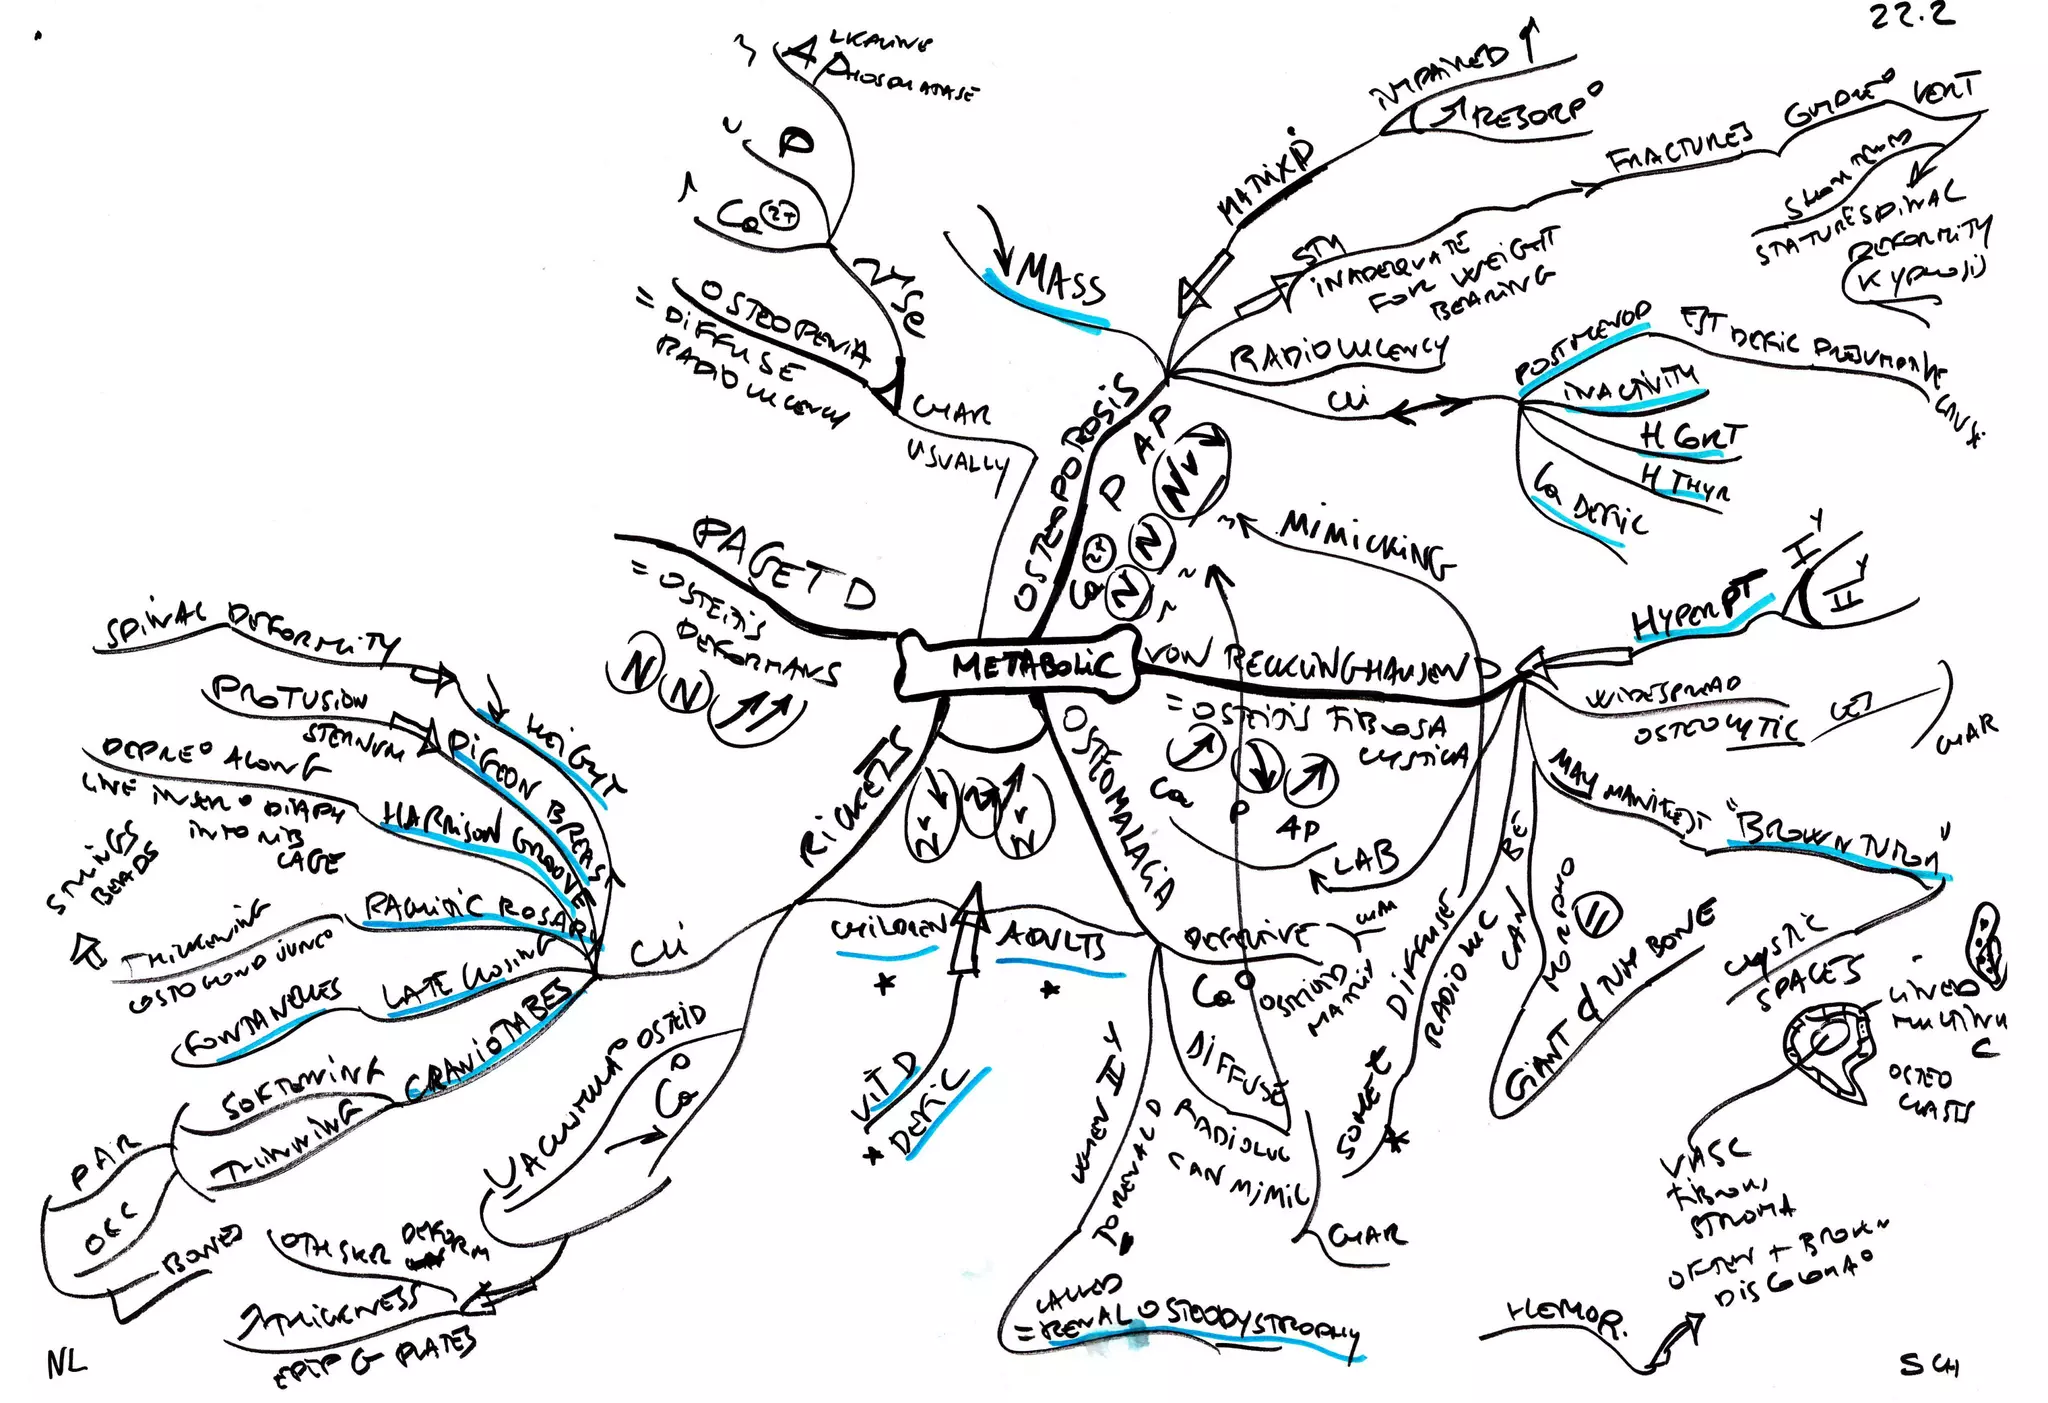 22.2
3 ALKALINE
PHOSPHATASE
2 P
1 Ca 2+
OSTEOPENIA
= DIFFUSE
RADIOLUCENCY
CHAR
USUALLY
MASS
OSTEOPOROSIS
MATRIX P°
IMPAIRED ↑
↗ RESORP°
STH
INADEQUATE
FOR WEIGHT
BEARING
FRACTURES
VERT
STATURE SPINAL
DEFORMITY
KYPHOSIS
RADIOLUCENCY
CLI
POSTMENOP
EST DEFIC PRESUMABLE
CAUSE
INACTIVITY
H CORT
H THYR
Ca DEFIC
Ca 2+ N
P N
AP N
MIMICKING
PAGET D
= OSTEITIS
DEFORMANS
N N ↗↗
METABOLIC
VON RECKLINGHAUSEN D
= OSTEITIS FIBROSA
CYSTICA
Ca P AP
LAB
HYPERPT
I Y
II Y
WIDESPREAD
OSTEOLYTIC LES
CHAR
MAY MANIFEST
"BROWN TUMOR"
CYSTIC
SPACES
LINED
MULTINUC
OSTEO
CLASTS
VASC
FIBROUS
STROMA
OFTEN + BROWN
DISCOLORA°
HEMOR.
CAN BE
MORPHO =
GIANT C TUM BONE
SOMET
DIFFUSE
RADIOLUC
OSTEOMALACIA
ADULTS
DEFECTIVE
Ca°
OSTEOID
MATRIX
DIFFUSE
RADIOLUC
CAN MIMIC
CHAR
WHEN II Y
TO RENAL D
CALLED
= RENAL OSTEODYSTROPHY
RICKETS
CHILDREN
VIT D
DEFIC
CLI
SPINAL DEFORMITY
HEIGHT
PROTUSION
STERNUM
PIGEON BREAST
DEPRE° ALONG
LINE INSER° DIAPH
INTO RIB
CAGE
HARRISON GROOVE
STRINGS
BEADS
THICKENING
COSTOCHOND JUNC°
RACHITIC ROSARY
FONTANELLES
LATE CLOSING
CRANIOTABES
SOFTENING
THINNING
PAR
OCC
BONES
↗ Ca°
OTH SKEL DEFORM
↗ THICKNESS
EPIP G PLATES
NL
SCH